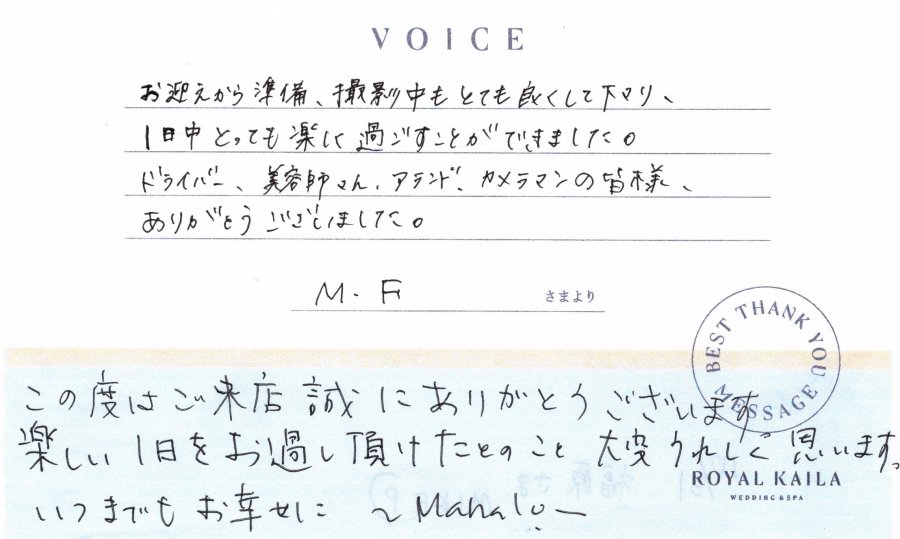 VOICE
お迎えから準備、撮影中もとても良くして下マリ、
1日中とっても楽しく過ごすことができました。
ドライバー、美容師さん、アテンド、カメラマンの皆様、
ありがとうございました。
M.F さまより
BEST THANK YOU MESSAGE
この度はご来店誠にありがとうございます
楽しい1日をお過し頂けたとのこと大変うれしく思います。
ROYAL KAILA
WEDDING & SPA
いつまでもお幸せに ~Mahalo~